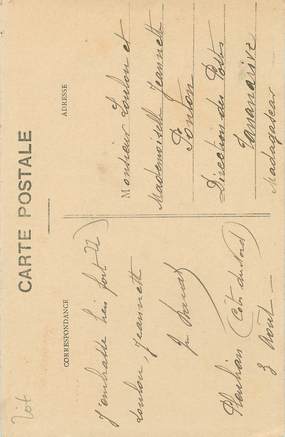 CARTE POSTALE
CORRESPONDANCE
ADRESSE
J'embrasse bien fort
Loulou, Jeannett
Plouhan (Côtes du Nord)
3 Août
Monsieur Loulou et
Mademoiselle Jeannett
Ponton
Direction des Postes
Tananarive
Madagascar